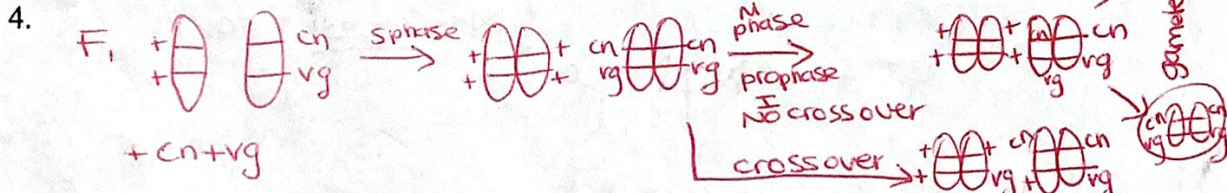 4.
F₁ + + cn vg S phase + + + + cn rg cn rg M phase prophase I NO crossover + + + + cn vg cn rg gamete
cn vg cn vg
+ cn + vg
crossover + + + vg cn + cn vg